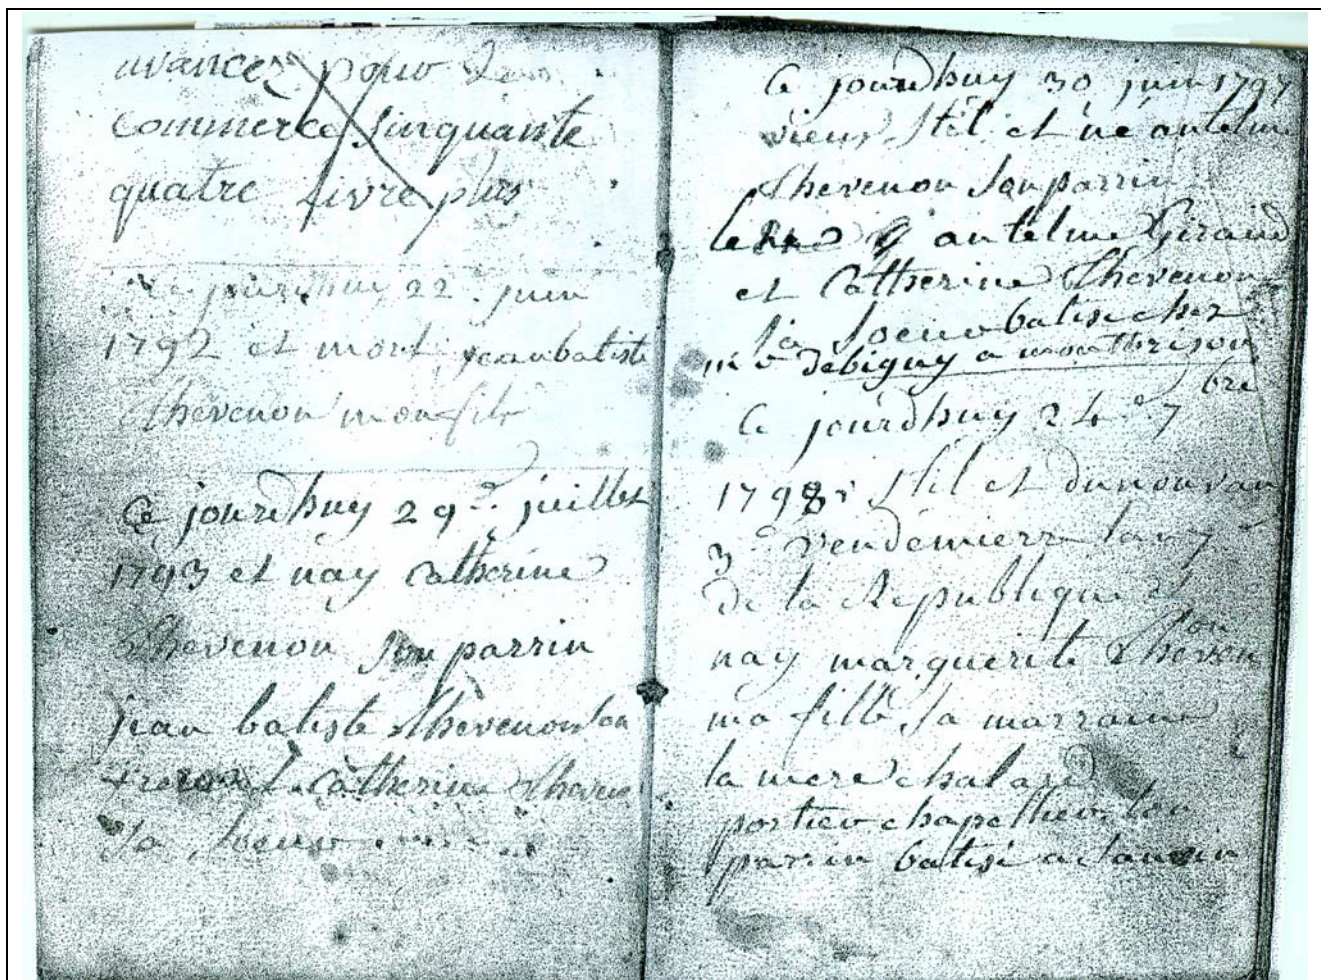 avancez pour
commerce sinquante
quatre livre plus
ce jourdhuy 22e juin
1792 et mort jean batiste
thevenon mon fils
Ce jourdhuy 29e juillet
1793 et nay catherine
thevenon son parrin
jean batiste thevenon son
frere et Catherine theven
sa soeur
Ce jourdhuy 30 juin 1797
vieux stil et né antelme
thevenon son parrin
antelme Giraud
et Catherine thevenon
sa soeur batisé chez
mr debigny a montbrison
Ce jourdhuy 24e 7
bre
1798 v stil et du nouvau
3e vendemierre lan 7
de la Republique
nay marguerite theven
on
ma fille sa marraine
la mere chalard
portier chapellier son
parrin batisé a